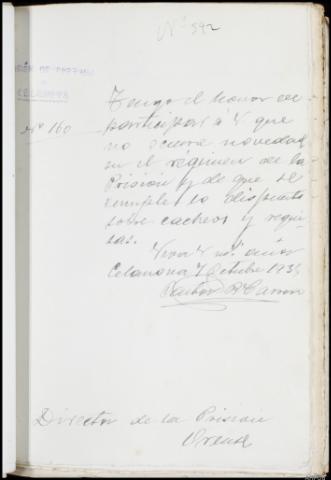 Nº 592
PRISIÓN DE PARTIDO
CELANOVA
Nº 160
Tengo el honor de
participar á V que
no ocurre novedad
en el régimen de la
Prisión y de que se
cumple lo dispuesto
sobre cacheos y requi
sas.
Viva V ms. años
Celanova 7 Octubre 193
Director de la Prisión
Orense